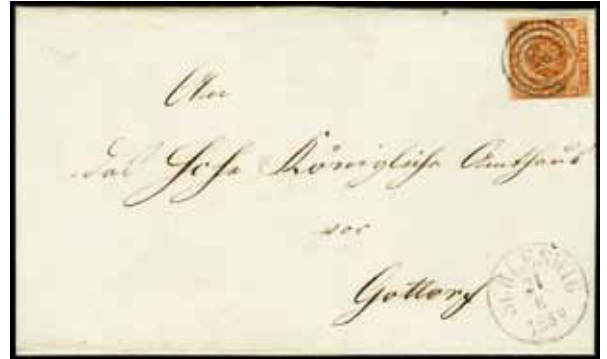 An
das Hohe Königliche Amthaus
vor
Gottorf
SCHLESWIG
21
6
1859